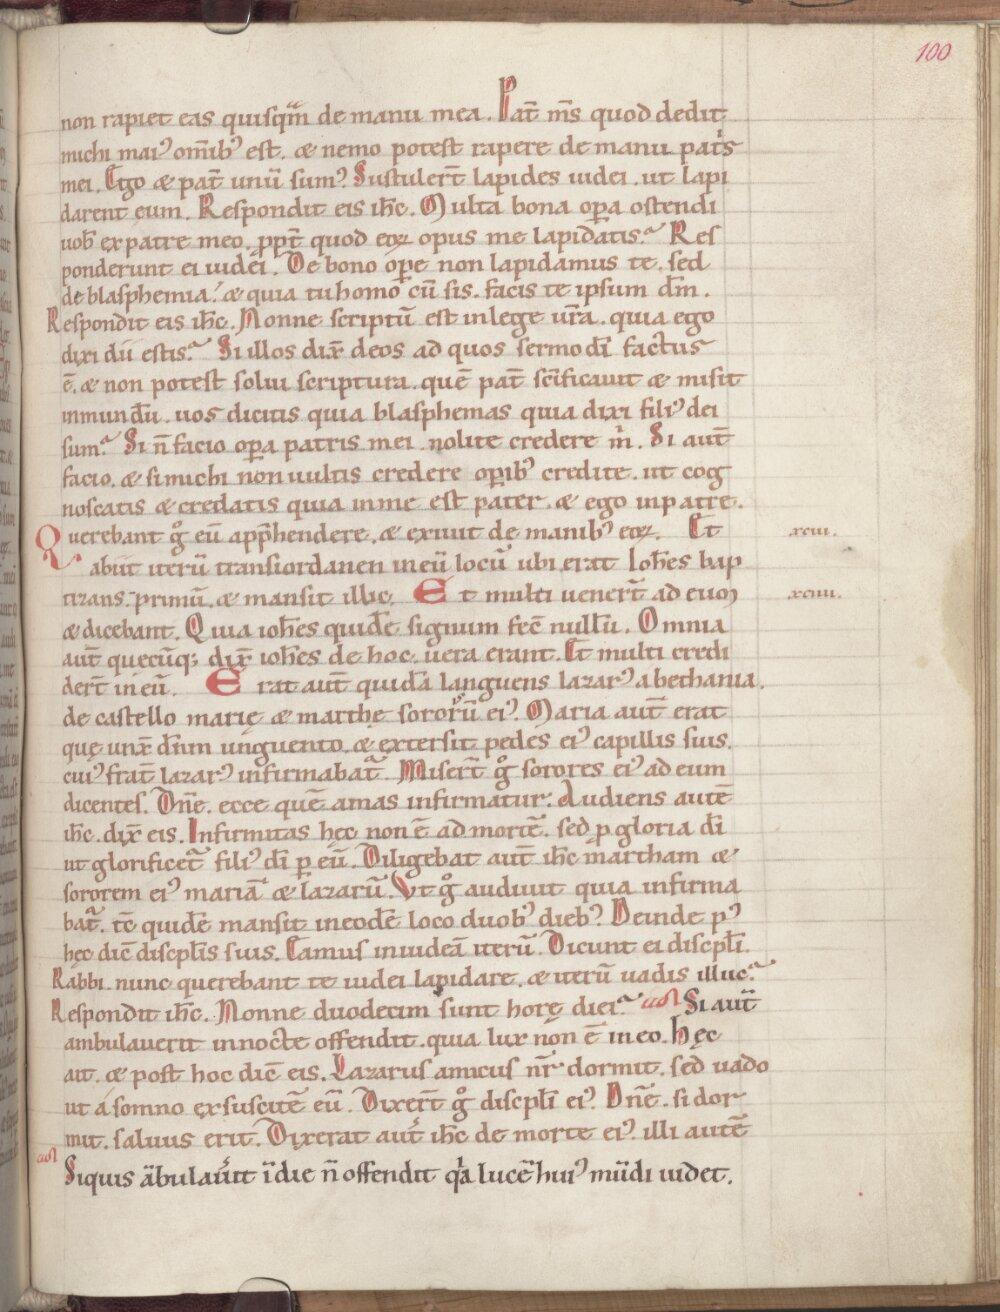 100
non rapiet eas quisqͣm de manu mea. Pat̄ m̄s quod dedit
michi maiꝰ om̄ibꝰ est. æ nemo potest rapere de manu patͥs
mei. Ego æ pat̄ unū sumꝰ. Sustulert̄ lapides iudei. ut lapi
darent eum. Respondit eis ih̄c. Multa bona oꝑa ostendi
uob̄ ex patre meo. ꝓpt̄ quod eoꝝ opus me lapidatis. Res
ponderunt ei iudei. De bono oꝑe non lapidamus te. sed
de blasphemia. æ quia tu homo cū sis. facis te ipsum dm̄.
Respondit eis ih̄c. Nonne scriptū est in lege ur̄a. quia ego
dixi dii estis. Si illos dix̄ deos ad quos sermo dī factus
ē. æ non potest solui scriptura. quē pat̄ sc̄ificauit æ misit
in mundū. uos dicitis quia blasphemas quia dixi filiꝰ dei
sum. Si n̄ facio oꝑa patris mei. nolite credere m̄. Si aut̄
facio. æ si michi non uultis credere oꝑibꝰ credite. ut cog
noscatis æ credatis quia in me est pater. æ ego in patre.
Querebant g̊ eū app̄hendere. æ exiuit de manibꝰ eoꝝ. Et
xciii.
abiit iterū trans iordanen in eū locū ubi erat Ioh̄es bap
tizans. primū. æ mansit illic. Et multi uenert̄ ad eum
xciiii.
æ dicebant. Quia ioh̄es quidē signum fec̄ nullū. Omnia
aut̄ quecūq; dix̄ ioh̄es de hoc. uera erant. Et multi credi
dert̄ in eū. Erat aut̄ quidā languens lazarꝰ a bethania.
de castello marię æ marthe sororū eiꝰ. Maria aut̄ erat
quę unx̄ dn̄m unguento. æ extersit pedes eiꝰ capillis suis.
cuiꝰ frat̄ lazarꝰ infirmabat᷑. Misert̄ g̊ sorores eiꝰ ad eum
dicentes. Dn̄e. ecce quē amas infirmatur. Audiens autē
ih̄c. dix̄ eis. Infirmitas hęc non ē ad mortē. sed ꝓ gloria dī
ut glorificet᷑ filiꝰ dī ꝑ eū. Diligebat aut̄ ih̄c martham æ
sororem eiꝰ mariā æ lazarū. Vt g̊ audiuit quia infirma
bat᷑. tc̄ quidē mansit in eodē loco duobꝰ diebꝰ. Deinde pꝰ
hęc dic̄ discpl̄is suis. Eamus in iudeā iterū. Dicunt ei discpl̄i.
Rabbi. nunc querebant te iudei lapidare. æ iterū uadis illuc.
Respondit ih̄c. Nonne duodecim sunt horę diei. Si aut̄
ambulauerit in nocte offendit. quia lux non ē in eo. Hęc
ait. æ post hoc dic̄ eis. Lazarus amicus nr̄ dormit. sed uado
ut a somno exsuscitē eū. Dixert̄ g̊ discpl̄i eiꝰ. Dn̄e. si dor
mit. saluus erit. Dixerat aut̄ ih̄c de morte eiꝰ. illi autē
Siquis ābulauit ī die n̄ offendit qͣa lucē huiꝰ mūdi uidet.